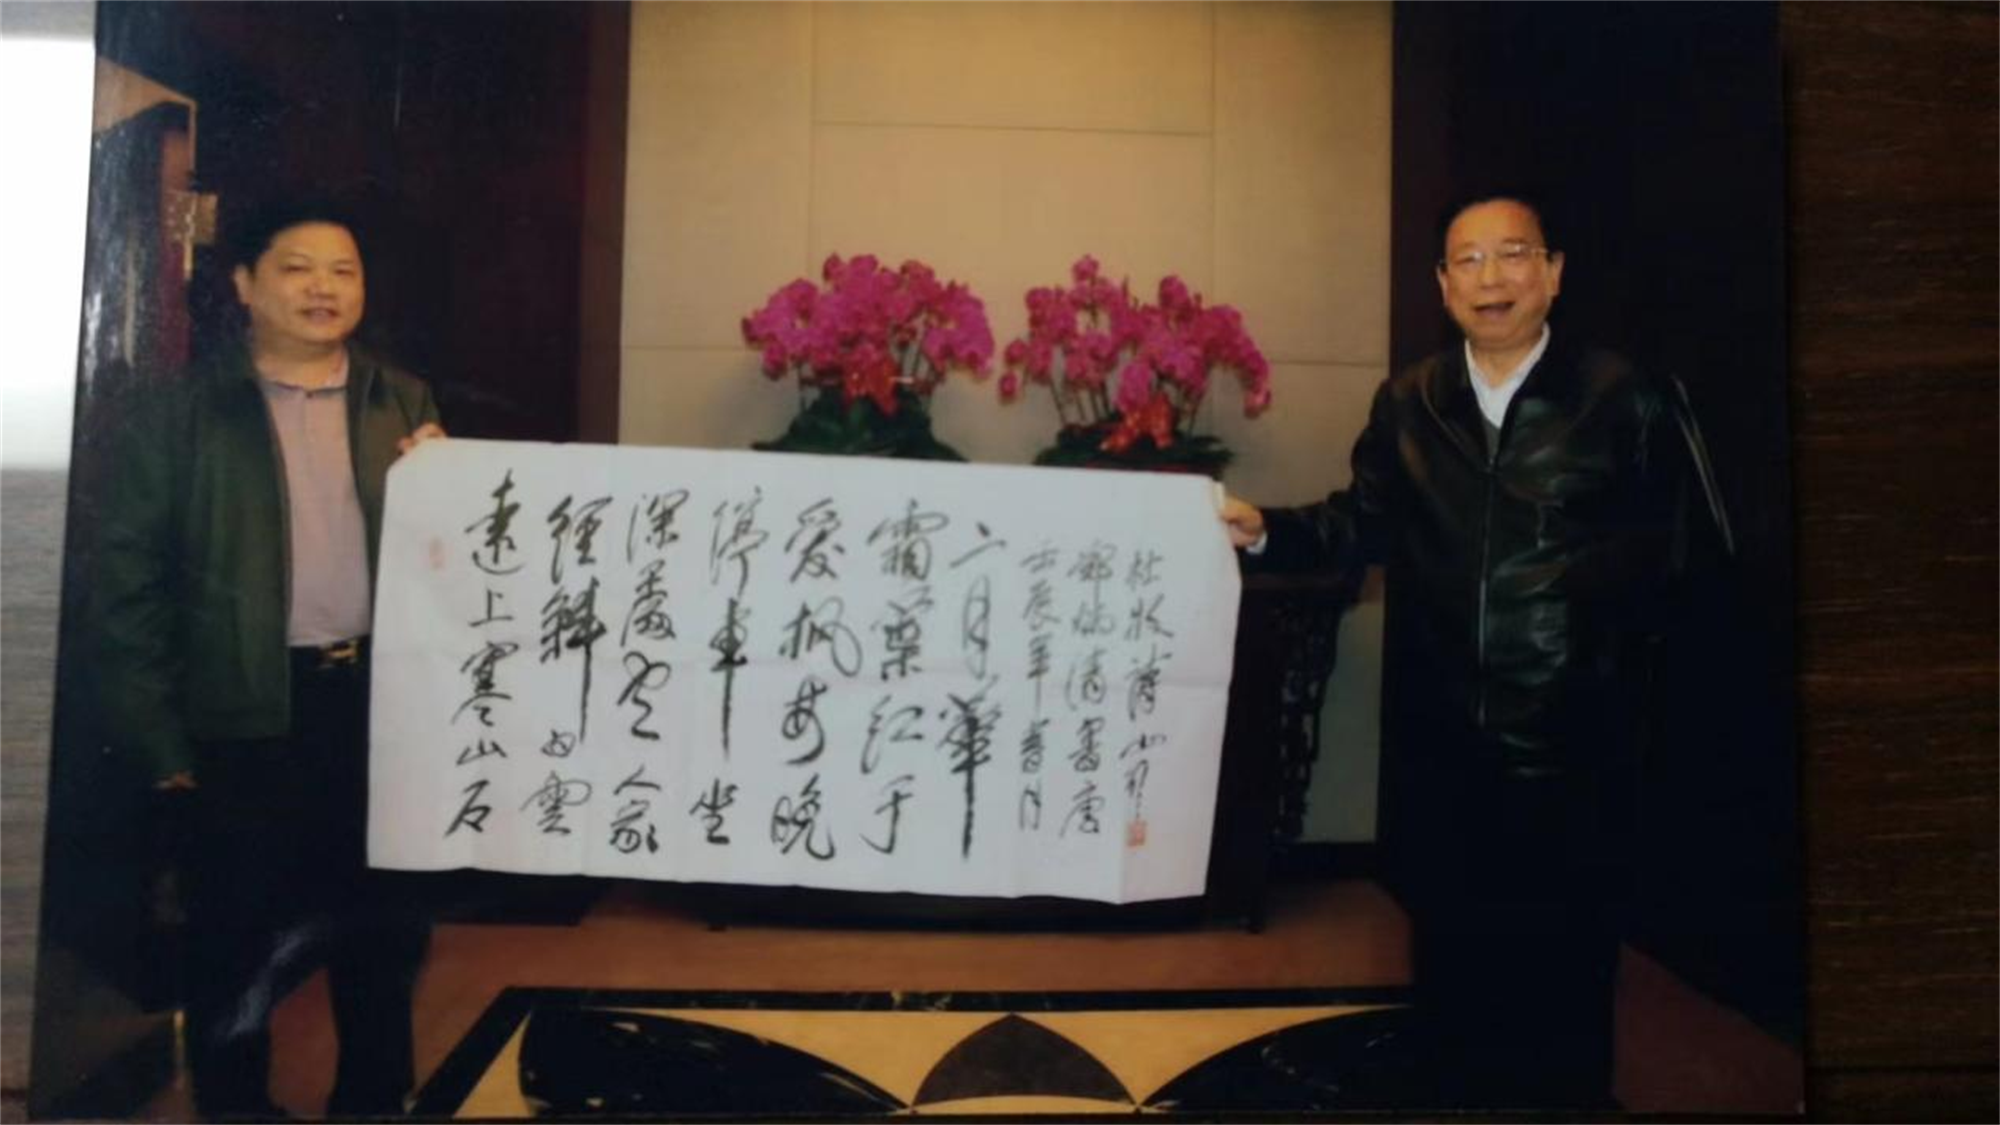 遠上寒山石
徑斜白雲
深處有人家
停車坐
愛楓林晚
霜葉紅于
二月華
壬辰年春月
炳清書唐
杜牧詩山行